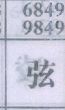 6849
9849
弦